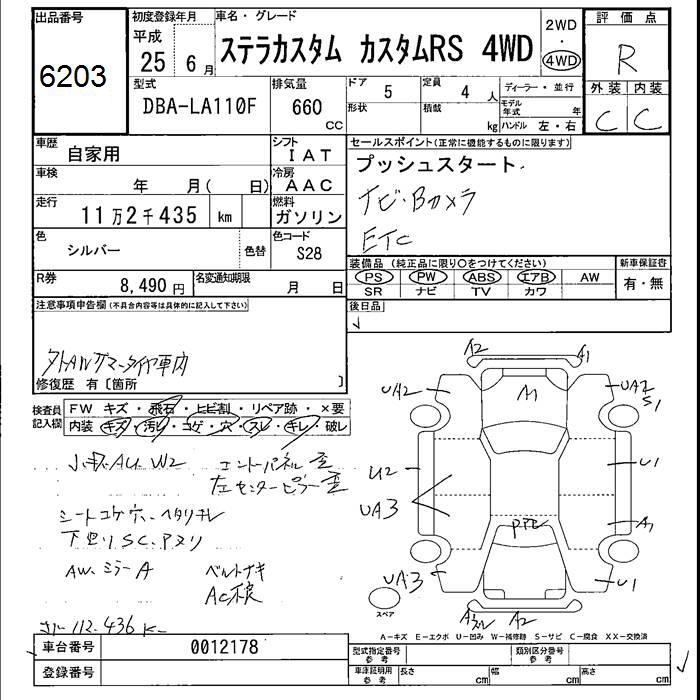 出品番号 初度登録年月 車名・グレード 2WD 評価点
6203 平成 25年 6月 ステラカスタム カスタムRS 4WD ・ 4WD R
型式 排気量 ドア 5 定員 4人 ディーラー・並行 外装 内装
DBA-LA110F 660 CC 形状 積載 kg モデル年式 年 C C
ハンドル 左・右
車歴 自家用 シフト IAT セールスポイント(正常に機能するものに限ります)
車検 年 月( 日) 冷房 AAC プッシュスタート
走行 11万2千435 km 燃料 ガソリン ナビ・Bカメラ
色 シルバー 色替 色コード S28 ETC
R券 8,490円 名変通知期限 月 日 装備品(純正品に限り○をつけてください) 新車保証書
PS PW ABS エアB AW 有・無
SR ナビ TV カワ
注意事項申告欄(不具合内容等は具体的に記入して下さい) 後日品
修復歴 有〔箇所 〕
検査員記入欄 FW キズ・飛石・ヒビ割・リペア跡・×要
内装 キズ・汚レ・コゲ・穴・スレ・キレ・破レ
A2 A1
UA2 M UA2 S1
小キズAU W2 エントパネル歪
左センターピラー歪
U2 U1
シートコゲ穴 ヘタリキレ UA3 A1
下回りSC、Pヌリ
AW、ミラーA ベルトナキ UA3 U1
スペア A2
112.436K
A-キズ E-エクボ U-凹み W-補修跡 S-サビ C-腐食 XX-交換済
車台番号 0012178 型式指定番号 参考 類別区分番号 参考
登録番号 車庫証明用 参考 長さ cm 幅 cm 高さ cm